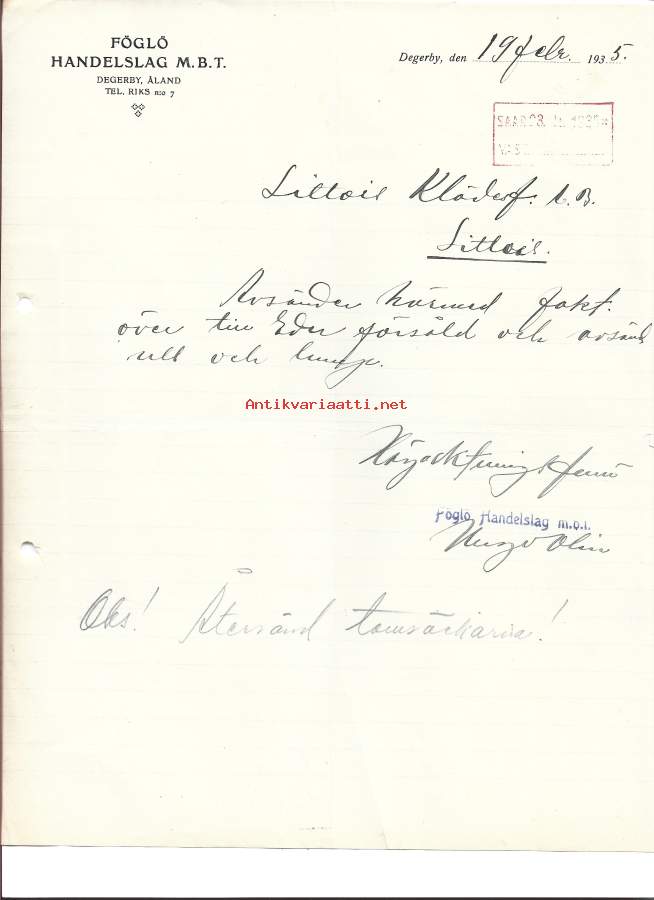 FÖGLÖ
HANDELSLAG M.B.T.
DEGERBY, ÅLAND
TEL. RIKS n:o 7
Degerby, den 19 febr. 1935.
SAAP 23.
VAST
Littois Klädesf. A.B.
Littois.
Avsänder härmed fakt.
över till Eder försåld och avsänd
ull och lump.
Högaktningsfullt
Föglö Handelslag m.b.t.
Hugo Olin
Obs! Återsänd tomsäckarna!
Antikvariaatti.net